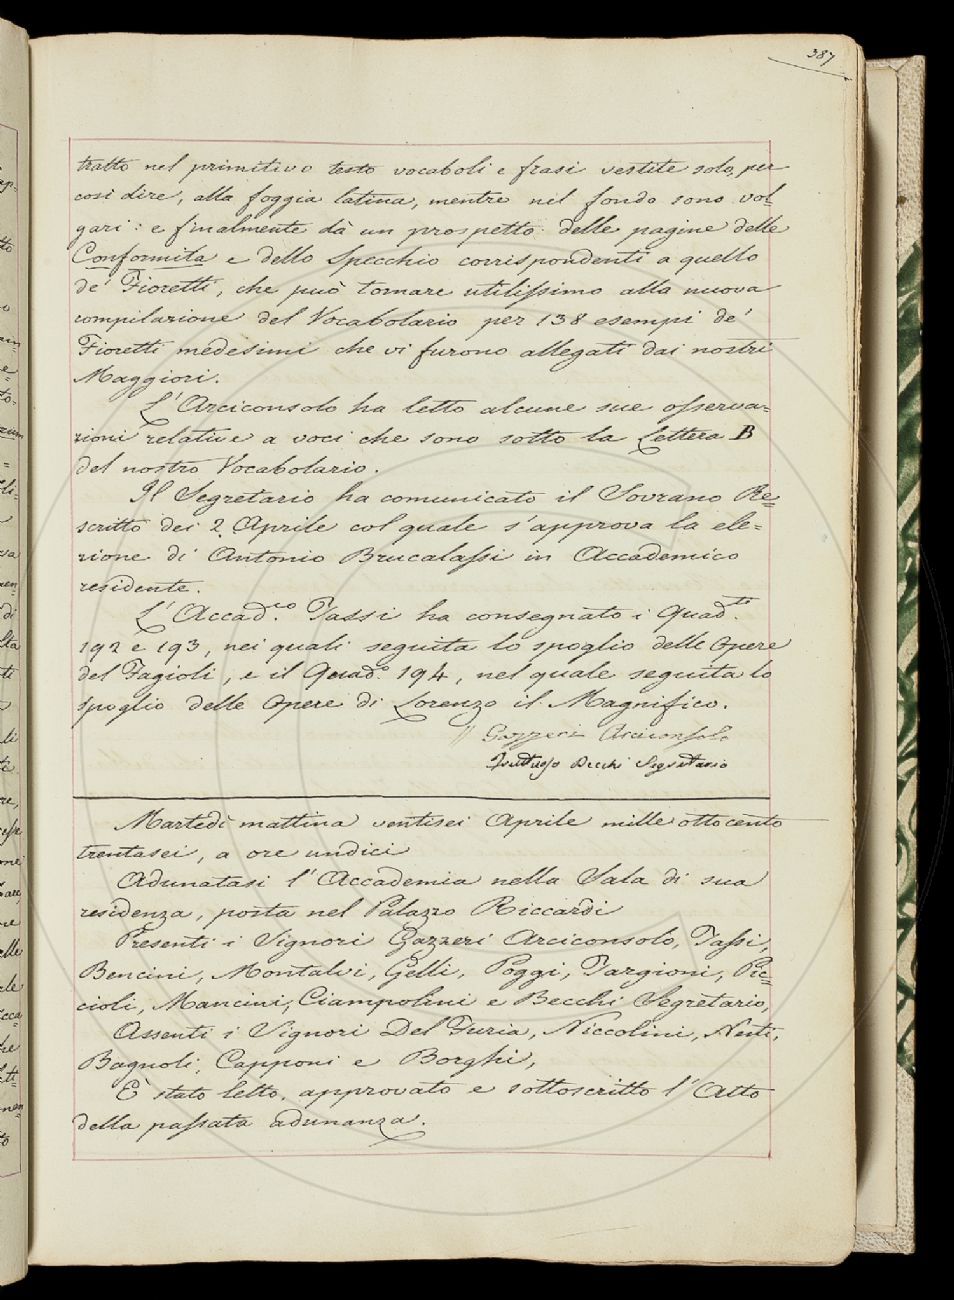 387
tratto nel primitivo testo vocaboli e frasi vestite solo, per
così dire, alla foggia latina, mentre nel fondo sono vol-
gari: e finalmente dà un prospetto delle pagine delle
Conformità e dello Specchio corrispondenti a quello
de' Fioretti, che può tornare utilissimo alla nuova
compilazione del Vocabolario per 138 esempi de'
Fioretti medesimi che vi furono allegati dai nostri
Maggiori.
L'Arciconsolo ha letto alcune sue osserva-
zioni relative a voci che sono sotto la Lettera B
del nostro Vocabolario.
Il Segretario ha comunicato il Sovrano Re-
scritto dei 2. Aprile col quale s'approva la ele-
zione di Antonio Brucalassi in Accademico
residente.
L'Accad.co Tassi ha consegnato i Quad.ti
192 e 193, nei quali seguita lo spoglio delle Opere
del Fagioli, e il Quad.o 194, nel quale seguita lo
spoglio delle Opere di Lorenzo il Magnifico.
Gazzeri Arciconsolo
Fruttuoso Becchi Segretario
Martedì mattina ventisei Aprile mille ottocento
trentasei, a ore undici
Adunatasi l'Accademia nella Sala di sua
residenza, posta nel Palazzo Riccardi
Presenti i Signori Gazzeri Arciconsolo, Tassi,
Bencini, Montalvi, Gelli, Poggi, Targioni, Pic-
cioli, Mancini, Ciampolini e Becchi Segretario,
Assenti i Signori Del Furia, Niccolini, Nesti,
Bagnoli, Capponi e Borghi,
È stato letto, approvato e sottoscritto l'Atto
della passata adunanza.